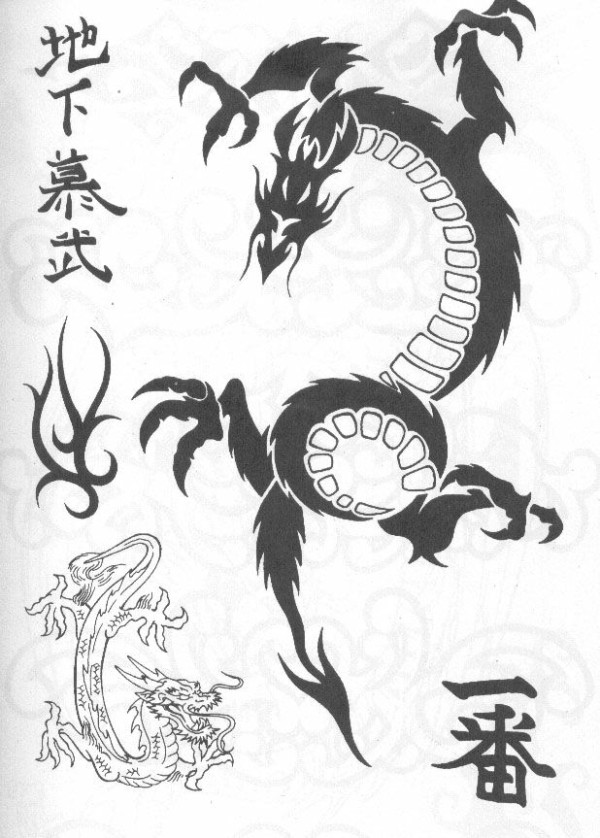 地下慕武
一番